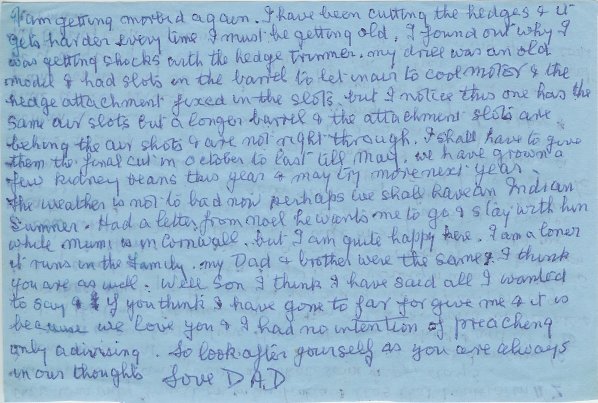 I am getting morbid again. I have been cutting the hedges & it
gets harder every time I must be getting old. I found out why I
was getting shocks with the hedge trimmer. my drill was an old
model & had slots in the barrel to let in air to cool motor & the
hedge attachment fixed in the slots. but I notice this one has the
same air slots but a longer barrel & the attachment slots are
behing the air shots & are not right through. I shall have to give
them the final cut in October to last till May. we have grown a
few kidney beans this year & may try more next year.
The weather is not to bad now perhaps we shall have an Indian
Summer. Had a letter from noel he wants me to go & stay with him
while mum is in Cornwall. but I am quite happy here. I am a loner
it runs in the family. my Dad & brother were the same & I think
you are as well. Well Son I think I have said all I wanted
to say & if you think I have gone to far forgive me & it is
because we love you & I had no intention of preaching
only advising. So look after yourself as you are always
in our thoughts Love DAD